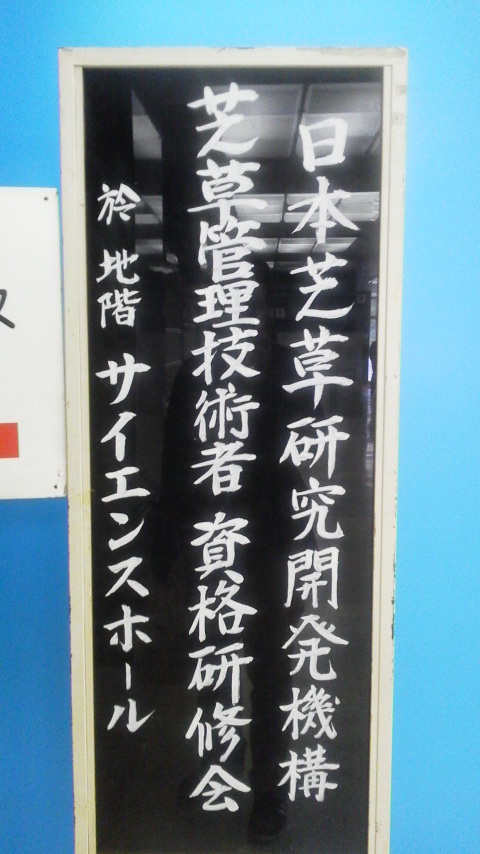 日本芝草研究開発機構
芝草管理技術者 資格研修会
於 地階 サイエンスホール